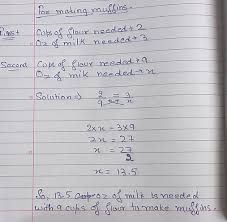 For making muffins.
First Cups of flour needed → 2
Oz of milk needed → 3
Second Cups of flour needed → 9
Oz of milk needed → x
Solution:) 2/9 = 3/x
2×x = 3×9
2x = 27
x = 27/2
x = 13.5
So, 13.5 oz of milk is needed
with 9 cups of flour to make muffins.